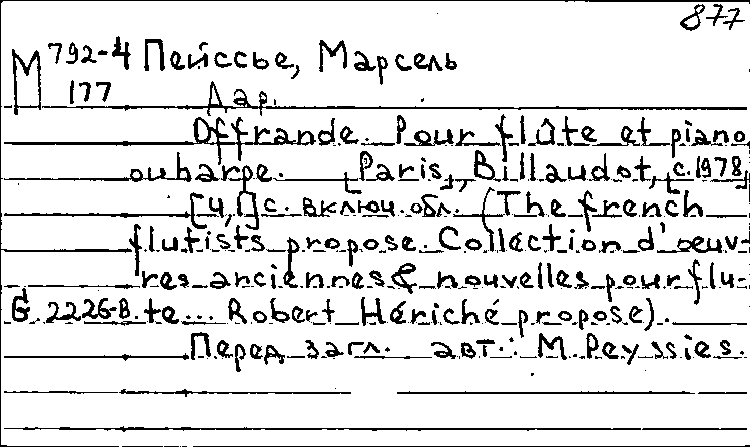 877
М 792-4 Пейссье, Марсель
177 Дар.
Offrande. Pour flûte et piano
ou harpe. [Paris], Billaudot, [c.1978]
[4,1] с. включ. обл. (The french
flutists propose. Collection d'oeuv-
res anciennes & nouvelles pour flu-
G. 2226-B. te... Robert Hériché propose).
Перед загл. авт.: M. Peyssies.